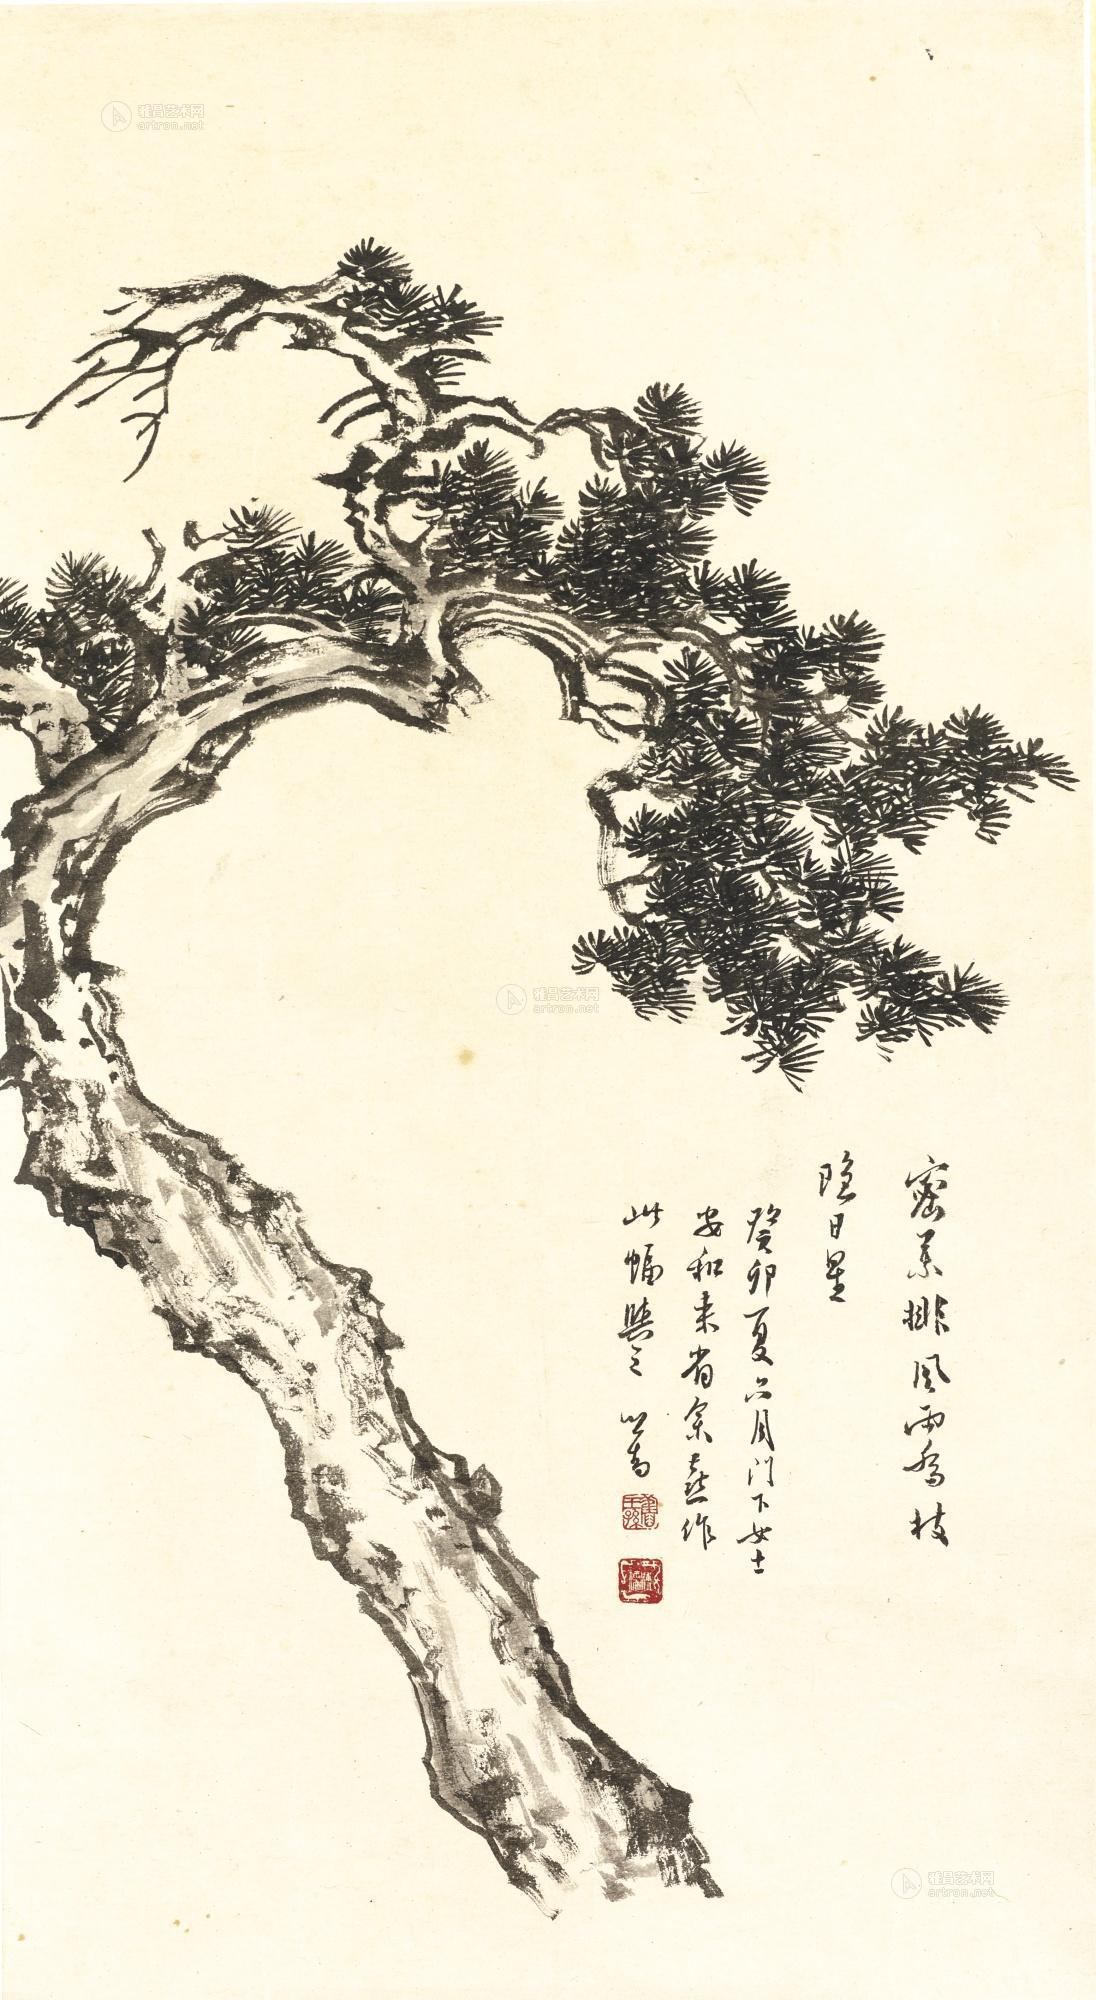 密葉排風雨喬枝
隱日星
癸卯夏六月門下女士
安和來省余喜作
此幅與之 心畬
舊王孫
雅昌艺术网
artron.net
雅昌艺术网
artron.net
雅昌艺术网
artron.net